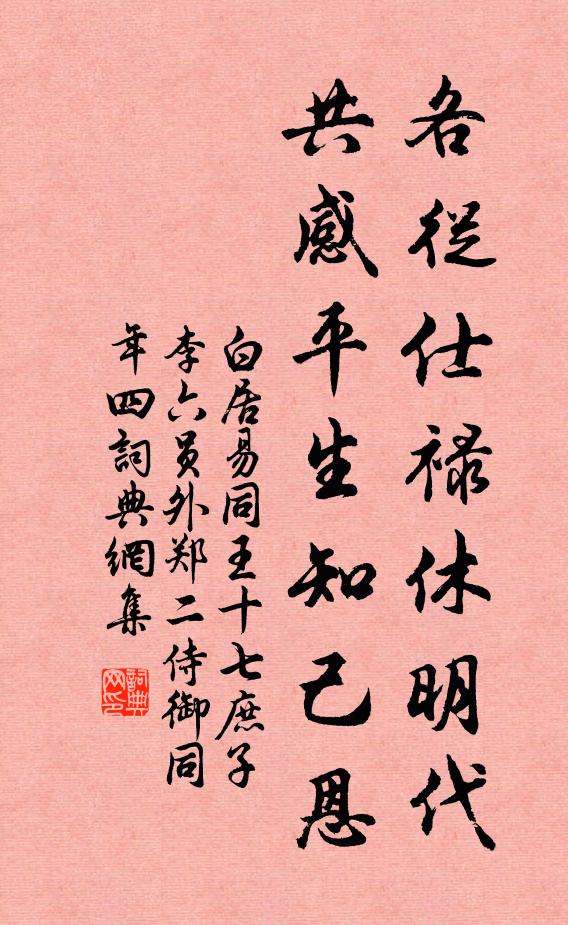 各從仕祿休明代
共感平生知己恩
白居易同王十七庶子
李六员外郑二侍御同
年四詞典網集
詞典网印